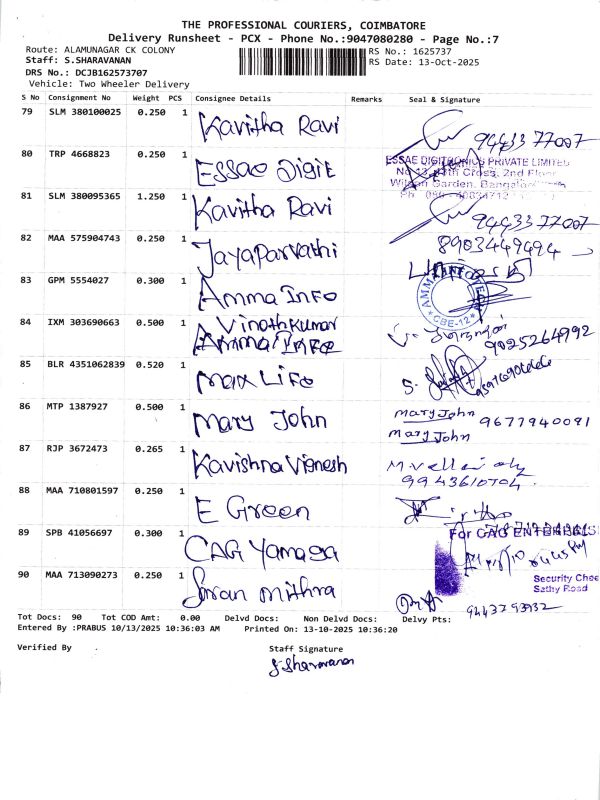 THE PROFESSIONAL COURIERS, COIMBATORE
Delivery Runsheet - PCX - Phone No.:9047080280 - Page No.:7
Route: ALAMUNAGAR CK COLONY
RS No.: 1625737
Staff: S.SHARAVANAN
RS Date: 13-Oct-2025
DRS No.: DCJB162573707
Vehicle: Two Wheeler Delivery
S No Consignment No Weight PCS Consignee Details Remarks Seal & Signature
79 SLM 380100025 0.250 1 Kavitha Ravi 94433 77007
80 TRP 4668823 0.250 1 ESSAE Digit
ESSAE DIGITRONICS PRIVATE LIMITED
No 13, 13th Cross, 2nd Floor
Wilson Garden, Bangalore
81 SLM 380095365 1.250 1 Kavitha Ravi 94433 77007
82 MAA 575904743 0.250 1 Jayaparvathi 8903449494
83 GPM 5554027 0.300 1 Amma INFO
CBE-12
84 IXM 303690663 0.500 1 A Vinothkumar
Amma INFO
9025264992
85 BLR 4351062839 0.520 1 Max LiFo S.
86 MTP 1387927 0.500 1 Mary John Mary John 9677940091
Mary John
87 RJP 3672473 0.265 1 Kavishna Vignesh
9943610704
88 MAA 710801597 0.250 1 E Green
89 SPB 41056697 0.300 1 CAG Yamaga
For CAG ENTERPRISES
90 MAA 713090273 0.250 1 Mithra
Security Chee
Sathy Road
9443793932
Tot Docs: 90 Tot COD Amt: 0.00 Delvd Docs: Non Delvd Docs: Delvy Pts:
Entered By :PRABUS 10/13/2025 10:36:03 AM Printed On: 13-10-2025 10:36:20
Verified By . Staff Signature
S Sharavanan